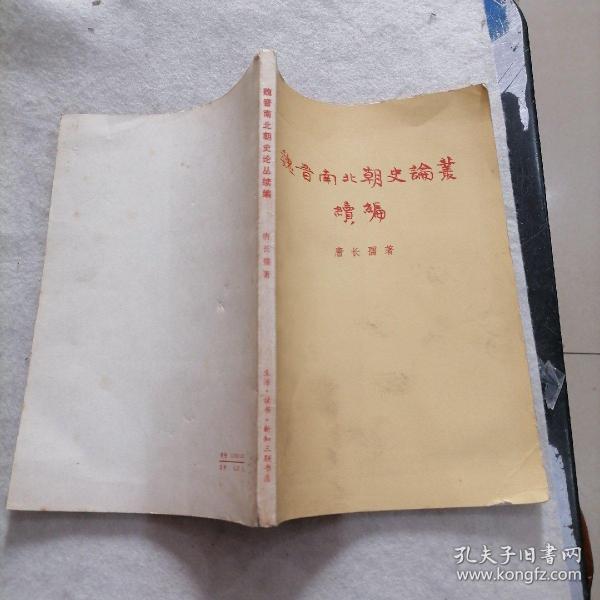 魏晋南北朝史論叢
續編
唐长孺著
魏晋南北朝史论丛续编
唐长孺著
生活·读书·新知三联书店
孔夫子旧书网
www.kongfz.com